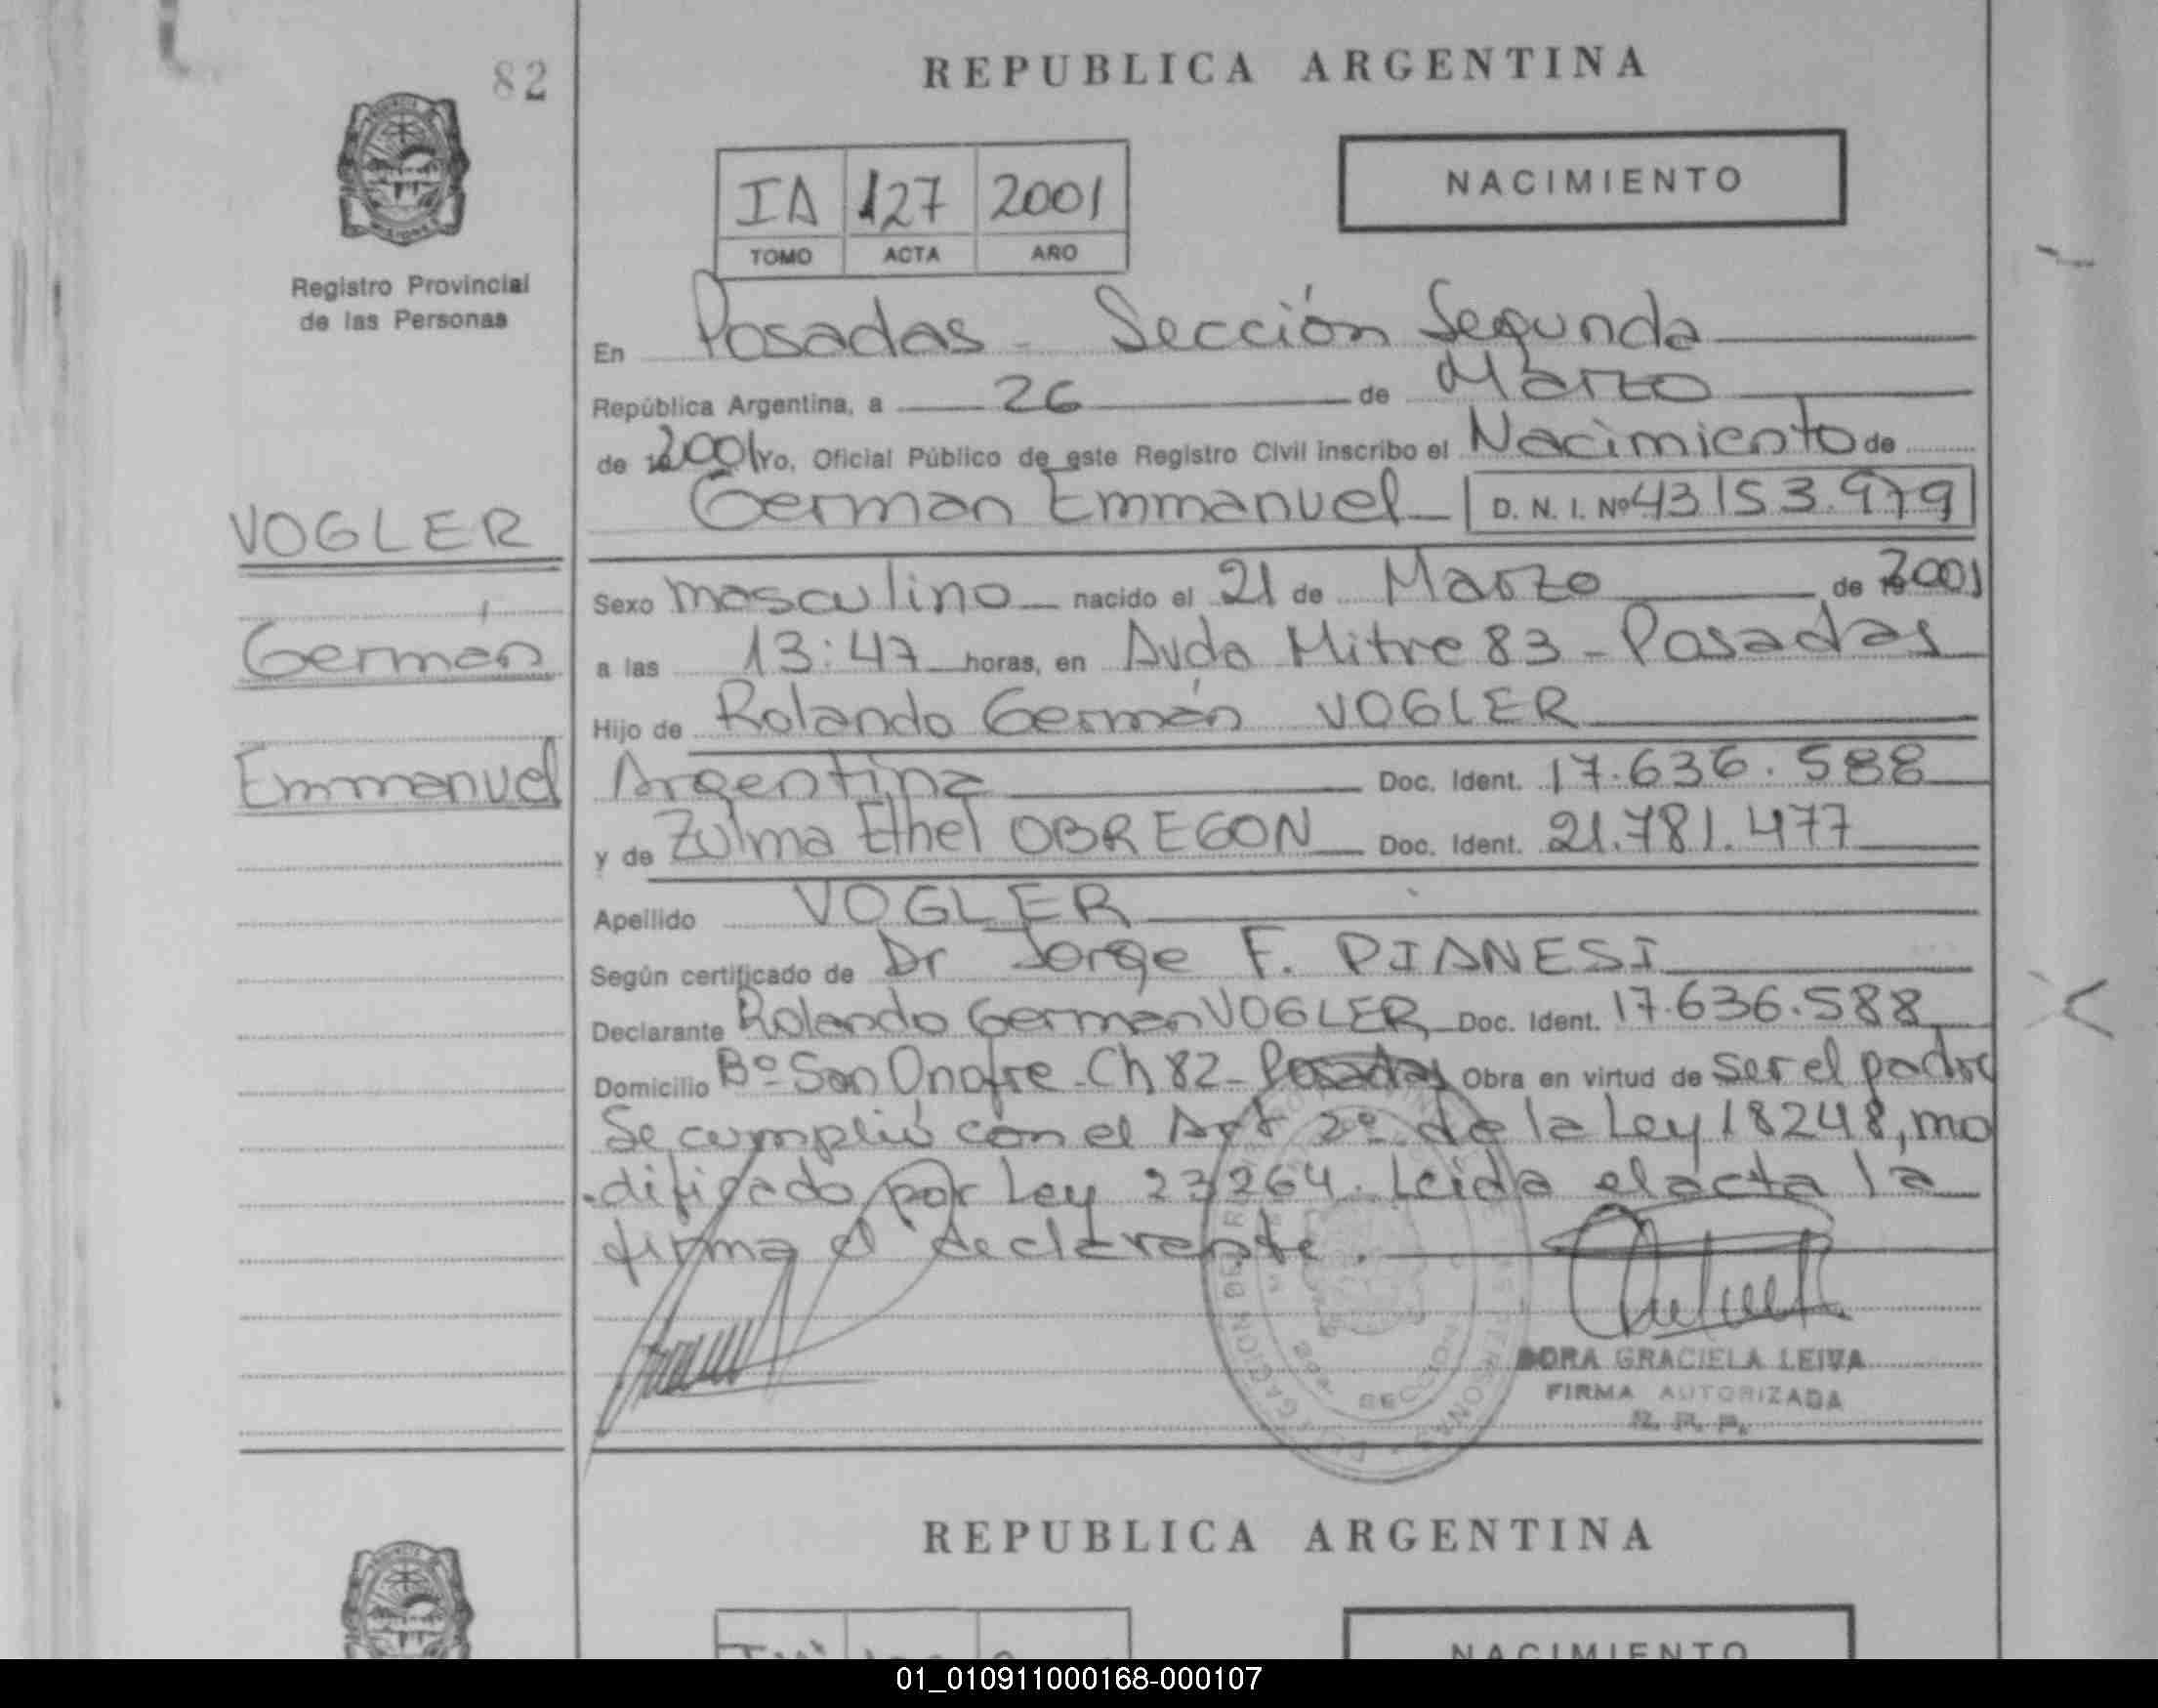 82
REPUBLICA ARGENTINA
IA 127 2001
TOMO ACTA AÑO
NACIMIENTO
Registro Provincial
de las Personas
En Posadas - Sección Segunda
República Argentina, a 26 de Marzo
de 2001 Yo, Oficial Público de este Registro Civil inscribo el Nacimiento de
German Emmanuel D. N. I. Nº 43153.979
VOGLER
Germán
Emmanuel
Sexo masculino nacido el 21 de Marzo de 2001
a las 13:47 horas, en Avda Mitre 83 - Posadas
Hijo de Rolando Germán VOGLER
Argentina Doc. Ident. 17.636.588
y de Zulma Ethel OBREGON Doc. Ident. 21.781.477
Apellido VOGLER
Según certificado de Dr Jorge F. PIANESI
Declarante Rolando German VOGLER Doc. Ident. 17.636.588
Domicilio Bº San Onofre - Ch 82 - Posadas Obra en virtud de ser el padre
Se cumplió con el Art 2º de la Ley 18248, mo
dificado por Ley 23264. Leida el acta la
firma el declarante.
DORA GRACIELA LEIVA
FIRMA AUTORIZADA
R. P. P.
REPUBLICA ARGENTINA
NACIMIENTO
01_010911000168-000107